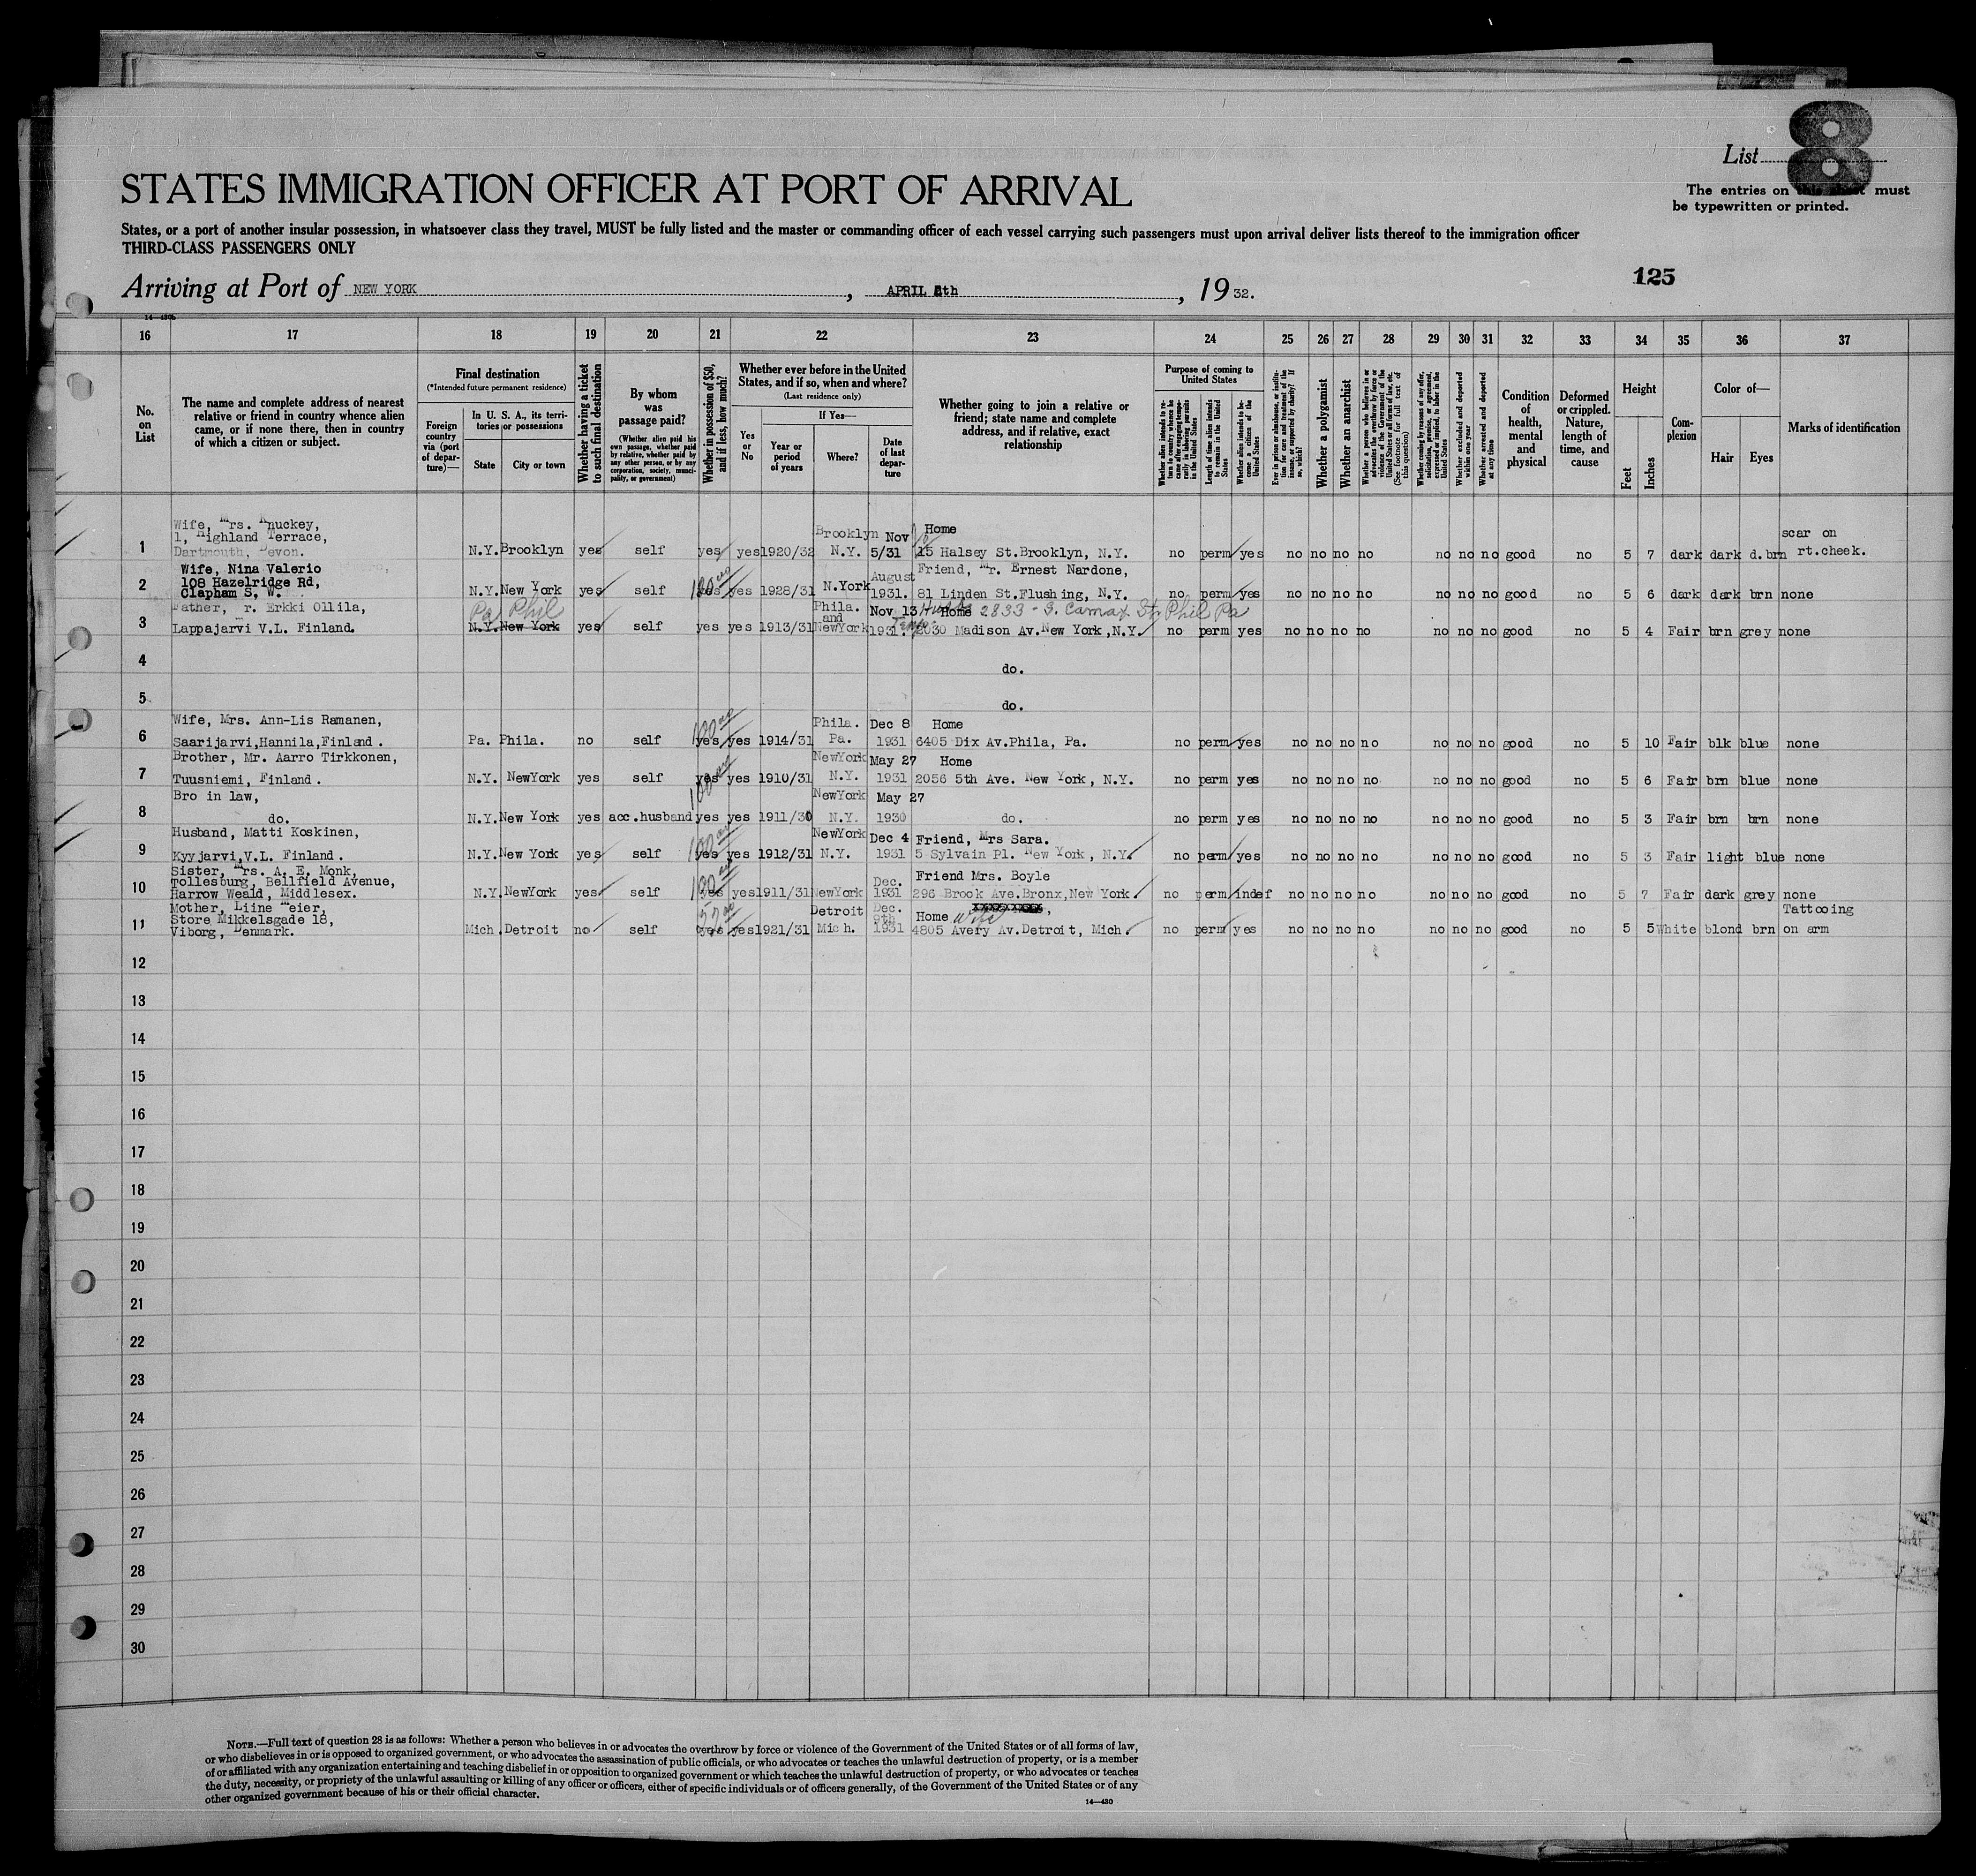 List 8
The entries on this sheet must
be typewritten or printed.
STATES IMMIGRATION OFFICER AT PORT OF ARRIVAL
States, or a port of another insular possession, in whatsoever class they travel, MUST be fully listed and the master or commanding officer of each vessel carrying such passengers must upon arrival deliver lists thereof to the immigration officer
THIRD-CLASS PASSENGERS ONLY
125
Arriving at Port of NEW YORK, APRIL th, 19 32.
14—430b
16 17 18 19 20 21 22 23 24 25 26 27 28 29 30 31 32 33 34 35 36 37
No. on List
The name and complete address of nearest relative or friend in country whence alien came, or if none there, then in country of which a citizen or subject.
Final destination
(*Intended future permanent residence)
Foreign country via (port of departure)—
In U. S. A., its territories or possessions
State
City or town
Whether having a ticket to such final destination
By whom was passage paid?
(Whether alien paid his own passage, whether paid by relative, whether paid by any other person, or by any corporation, society, municipality, or government)
Whether in possession of $50, and if less, how much?
Whether ever before in the United States, and if so, when and where?
(Last residence only)
Yes or No
If Yes—
Year or period of years
Where?
Date of last departure
Whether going to join a relative or friend; state name and complete address, and if relative, exact relationship
Purpose of coming to United States
Whether alien intends to return to country whence he came after engaging temporarily in laboring pursuits in the United States
Length of time alien intends to remain in the United States
Whether alien intends to become a citizen of the United States
Ever in prison or almshouse, or institution for care and treatment of the insane, or supported by charity? If so, which?
Whether a polygamist
Whether an anarchist
Whether a person who believes in or advocates the overthrow by force or violence of the Government of the United States or all forms of law, etc. (See footnote for full text of this question)
Whether coming by reasons of any offer, solicitation, promise, or agreement, expressed or implied, to labor in the United States
Whether excluded and deported within one year
Whether arrested and deported at any time
Condition of health, mental and physical
Deformed or crippled. Nature, length of time, and cause
Height
Feet
Inches
Complexion
Color of—
Hair
Eyes
Marks of identification
1 Wife, Mrs. Knuckey,
1, Highland Terrace,
Dartmouth, Devon. N.Y. Brooklyn yes self yes yes 1920/32 Brooklyn N.Y. Nov 5/31 Home
15 Halsey St.Brooklyn, N.Y. no perm yes no no no no no no no good no 5 7 dark dark d.brn scar on rt.cheek.
2 Wife, Nina Valerio
108 Hazelridge Rd,
Clapham S. W. N.Y. New York yes self 100 00 yes yes 1928/31 N.York August 1931. Friend, Mr. Ernest Nardone,
81 Linden St.Flushing, N.Y. no perm yes no no no no no no no good no 5 6 dark dark brn none
3 Father, r. Erkki Ollila,
Lappajarvi V.L. Finland. Pa Phil N.Y. New York yes self yes yes 1913/31 Phila. and NewYork Nov 13 1931. Home 2833 - S. Camax St Phil Pa
2030 Madison Av.New York,N.Y. no perm yes no no no no no no no good no 5 4 Fair brn grey none
4 do.
5 do.
6 Wife, Mrs. Ann-Lis Ramanen,
Saarijarvi,Hannila,Finland. Pa. Phila. no self 100 00 yes yes 1914/31 Phila. Pa. Dec 8 1931 Home
6405 Dix Av.Phila, Pa. no perm yes no no no no no no no good no 5 10 Fair blk blue none
7 Brother, Mr. Aarro Tirkkonen,
Tuusniemi, Finland. N.Y. NewYork yes self yes yes 1910/31 NewYork N.Y. May 27 1931 Home
2056 5th Ave. New York, N.Y. no perm yes no no no no no no no good no 5 6 Fair brn blue none
8 Bro in law,
do. N.Y. New York yes acc.husband 100 00 yes yes 1911/30 NewYork N.Y. May 27 1930 do. no perm yes no no no no no no no good no 5 3 Fair brn brn none
9 Husband, Matti Koskinen,
Kyyjarvi,V.L. Finland. N.Y. New York yes self 100 00 yes yes 1912/31 NewYork N.Y. Dec 4 1931 Friend, Mrs Sara.
5 Sylvain Pl. New York, N.Y. no perm yes no no no no no no no good no 5 3 Fair light blue none
10 Sister, Mrs. A. E. Monk,
Tollesburg, Bellfield Avenue,
Harrow Weald, Middlesex. N.Y. NewYork yes self 100 00 yes yes 1911/31 NewYork Dec. 1931 Friend Mrs. Boyle
296 Brook Ave.Bronx,New York. no perm indef no no no no no no no good no 5 7 Fair dark grey none
11 Mother, Liine Meier,
Store Mikkelsgade 18,
Viborg, Denmark. Mich. Detroit no self 50 00 yes yes 1921/31 Detroit Mich. Dec. 9th 1931 Home Wife
4805 Avery Av.Detroit, Mich. no perm yes no no no no no no no good no 5 5 White blond brn Tattooing on arm
12
13
14
15
16
17
18
19
20
21
22
23
24
25
26
27
28
29
30
NOTE.—Full text of question 28 is as follows: Whether a person who believes in or advocates the overthrow by force or violence of the Government of the United States or of all forms of law,
or who disbelieves in or is opposed to organized government, or who advocates the assassination of public officials, or who advocates or teaches the unlawful destruction of property, or is a member
of or affiliated with any organization entertaining and teaching disbelief in or opposition to organized government or which teaches the unlawful destruction of property, or who advocates or teaches
the duty, necessity, or propriety of the unlawful assaulting or killing of any officer or officers, either of specific individuals or of officers generally, of the Government of the United States or of any
other organized government because of his or their official character.
14—430